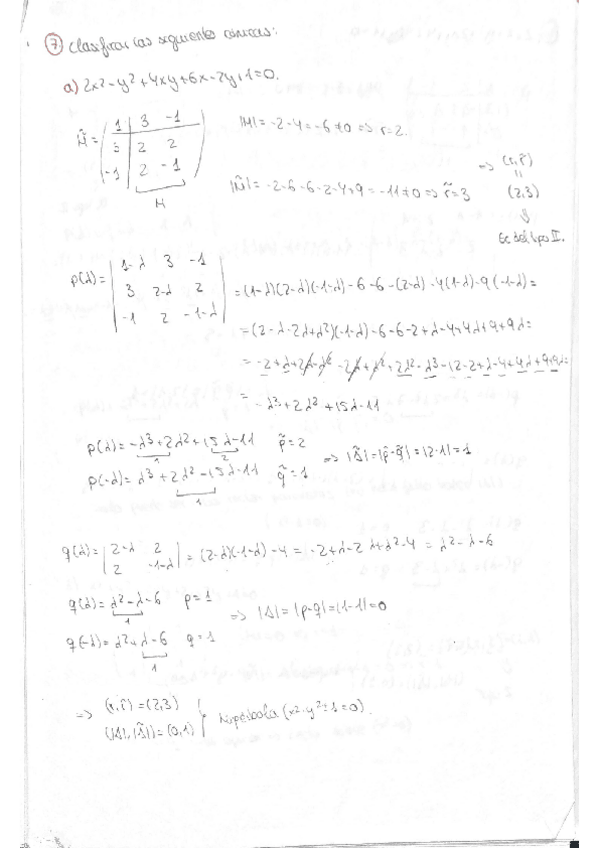 7 Clasificar las siguientes cónicas:
a) 2x²-y²+4xy+6x-2y+1=0.
M̃ = ( 1 3 -1
3 2 2
-1 2 -1 )
M
|M| = -2-4 = -6 ≠ 0 => r=2.
|M̃| = -2-6-6-2-4+9 = -11 ≠ 0 => r̃=3
=> (r, r̃)
=
(2,3)
⇓
Ec del tipo II.
p(λ) = | 1-λ 3 -1
3 2-λ 2
-1 2 -1-λ | = (1-λ)(2-λ)(-1-λ) -6-6-(2-λ)-4(1-λ)-9(-1-λ) =
= (2-λ-2λ+λ²)(-1-λ) -6-6-2+λ-4+4λ+9+9λ =
= -2+λ+2λ-λ²-2λ+λ²+2λ²-λ³-12-2+λ-4+4λ+9+9λ =
= -λ³+2λ²+15λ-11
p(λ) = -λ³+2λ²+15λ-11 p̃=2
1 2
p(-λ) = λ³+2λ²-15λ-11 q̃=1
1
=> |Δ̃| = |p̃-q̃| = |2-1| = 1
q(λ) = | 2-λ 2
2 -1-λ | = (2-λ)(-1-λ)-4 = -2+λ-2λ+λ²-4 = λ²-λ-6
q(λ) = λ²-λ-6 p=1
1
q(-λ) = λ²+λ-6 q=1
1
=> |Δ| = |p-q| = |1-1| = 0
=> (r, r̃) = (2,3)
(|Δ|, |Δ̃|) = (0,1) } hipérbola (x²-y²+1=0).